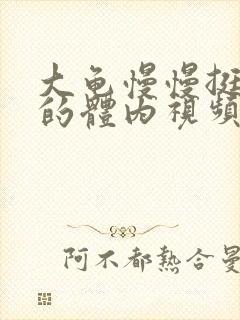 大龟慢慢挺
的體内視頻
阿不都熱合曼